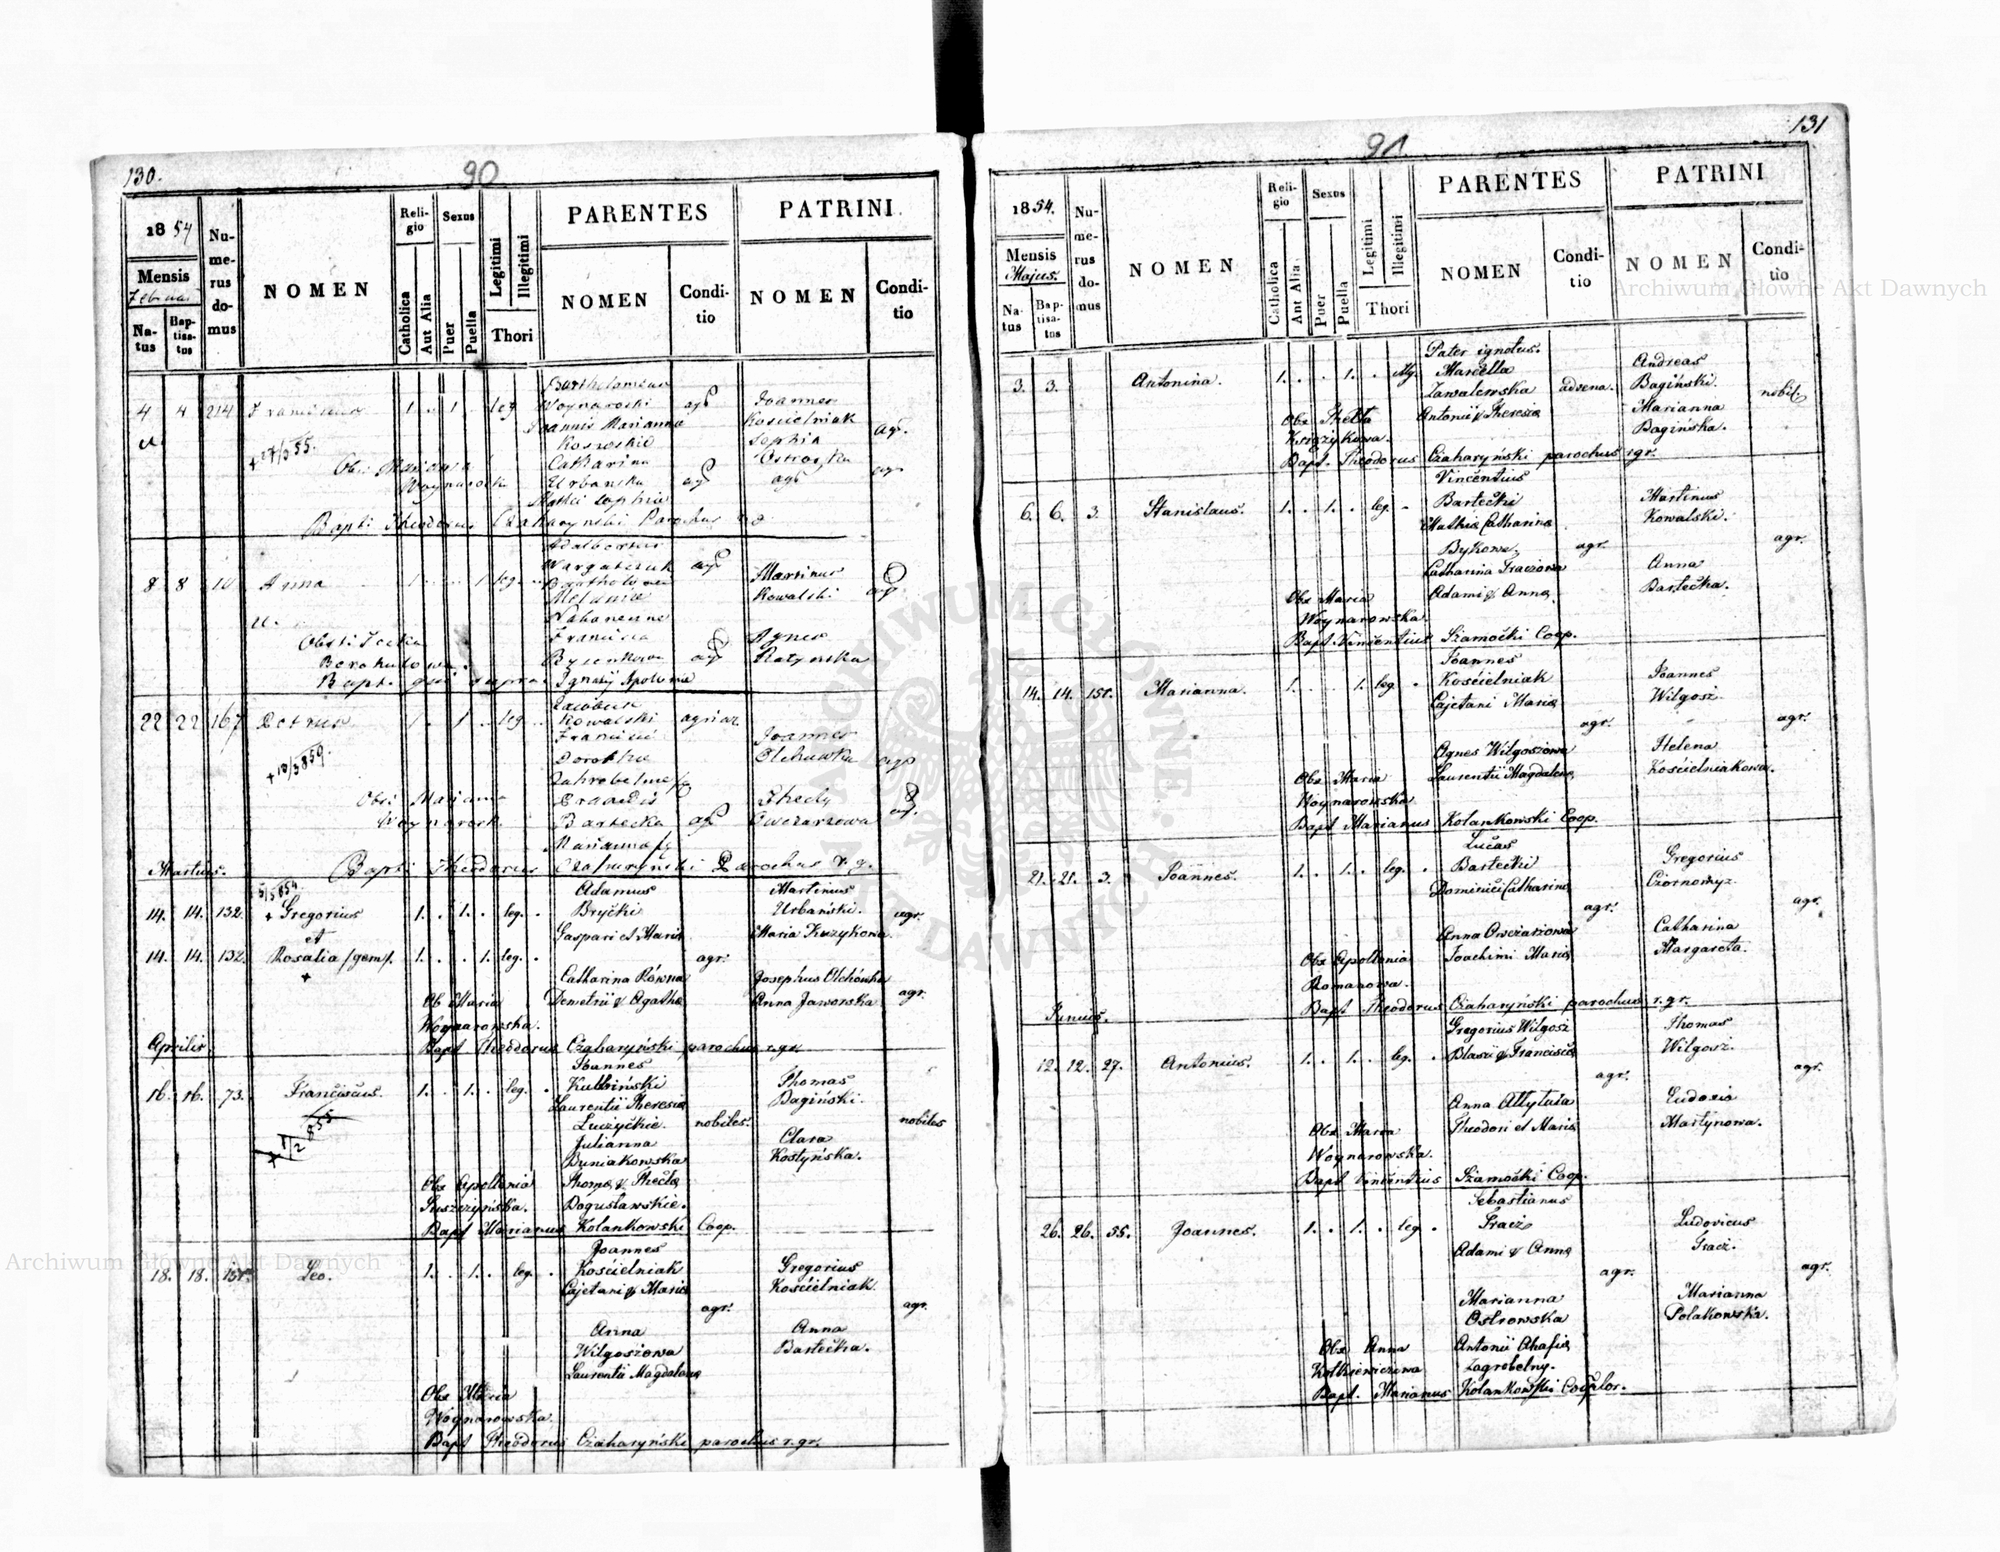 130.
90
1854
Mensis
Februar
Natus
Baptisatus
Numerus domus
NOMEN
Religio
Catholica
Aut Alia
Sexus
Puer
Puella
Legitimi
Illegitimi
Thori
PARENTES
NOMEN
Conditio
PATRINI
NOMEN
Conditio
4 4 214 Franciscus 1. . 1. . leg
Bartholomeus
Woynaroski agr
Joannis Marianna
Koswskie
Catharina
Urbanska agr
Joannes
Kościelniak
Sophia agr.
Ostroska
Obs: Marianna
Woynarosk
Bapt: Theodorus Czaharynski Parochus r g
8 8 Anna 1. . . 1 leg.
Adalbertus
Wargatczuk agr
Melania
Francisca
agr
Ignatij Apolonia
Martinus
Kowalski
Agnes
Ratynska
Bapt. qui supra
22 22 167 Petrus 1. . 1. . leg.
Jacobus
Kowalski agricol
Francisci
Dorothea
Bartecka agr
Marianna
Joannes
Olchawka agr
Thecly
Owczarzowa agr.
Obs: Marianna
Woynarosk.
Bapt: Theodorus Czaharyński Parochus r. g.
Martius.
14. 14. 132. + Gregorius 1. . 1. . leg. .
et
14. 14. 132. Rosalia /gem/. 1. . . 1. leg. .
+
Adamus
Bryćki
Gaspari et Maria
agr.
Catharina Równa
Demetrii & Agatha
Martinus
Urbański. agr.
Maria Kuzykowa
Josephus Olchówka
Anna Jaworska agr.
Ob Maria
Woynarowska.
Bapt Theodorus Czaharyński parochus r. gr.
Aprilis
16. 16. 73. Franciscus. 1. . 1. . leg. .
Joannes
Kubiński
Laurentii Theresia
Luczyckie. nobiles.
Julianna
Buniakowska
Thoma & Thecla
Bogusławskie.
Thomas
Bagiński.
nobiles
Clara
Kostyńska.
Obs Apollonia
Bapt Marianus Kolankowski Coop.
18. 18. 151. Leo. 1. . 1. . leg. .
Joannes
Kościelniak
Cajetani & Maria
agr.
Anna
Wilgoszowa
Laurentii Magdalena
Gregorius
Kościelniak.
agr.
Anna
Bartecka.
Obs Maria
Woynarowska.
Bapt Theodorus Czaharyński parochus r. gr.
131
91
1854.
Mensis
Majus.
Natus
Baptisatus
Numerus domus
NOMEN
Religio
Catholica
Aut Alia
Sexus
Puer
Puella
Legitimi
Illegitimi
Thori
PARENTES
NOMEN
Conditio
PATRINI
NOMEN
Conditio
3. 3. Antonina. 1. . . 1. . illg.
Pater ignotus.
Marcella
Zawalewska advena.
Antonii & Theresia
Andreas
Bagiński. nobil.
Marianna
Bagińska.
Obs Thekla
Księżykowa.
Bapt. Theodorus Czaharyński parochus r gr.
6. 6. 3. Stanislaus. 1. . 1. . leg. .
Vincentius
Bartecki
Mathia Catharina
Bykowe. agr.
Catharina Traczowa
Adami & Anna.
Martinus
Kowalski.
agr.
Anna
Bartecka.
Obs Maria
Woynarowska
Bapt. Vincentius Szamocki Coop.
14. 14. 151. Marianna. 1. . . 1. leg. .
Joannes
Kościelniak
Cajetani Maria
agr.
Agnes Wilgoszowa
Laurentii Magdalena
Joannes
Wilgosz.
agr.
Helena
Kościelniakowa.
Obs Maria
Woynarowska
Bapt Marianus Kolankowski Coop.
21. 21. 3. Joannes. 1. . 1. . leg. .
Lucas
Bartecki
Dominici Catharina
agr.
Anna Owczarzowa
Joachimi Maria
Gregorius
Czornomyz.
agr.
Catharina
Margareta.
Obs Apollonia
Romanowa.
Bapt Theodorus Czaharyński parochus r. gr.
Junius.
12. 12. 27. Antonius. 1. . 1. . leg. .
Gregorius Wilgosz
Blasii & Francisca
agr.
Anna Attytuła
Theodori et Maria
Thomas
Wilgosz.
agr.
Eudoxia
Martynowa.
Obs Maria
Woynarowska.
Bapt Vincentius Szamocki Coop.
26. 26. 55. Joannes. 1. . 1. . leg. .
Sebastianus
Tracz
Adami & Anna
agr.
Marianna
Ostrowska
Antonii Ahafia
Zagrobelny.
Ludovicus
Tracz.
agr.
Marianna
Polakowska.
Obs Anna
Kotkiewiczowa
Bapt. Marianus Kolankowski Cooptor.
Archiwum Główne Akt Dawnych
Archiwum Główne Akt Dawnych
ARCHIWUM GŁÓWNE AKT DAWNYCH